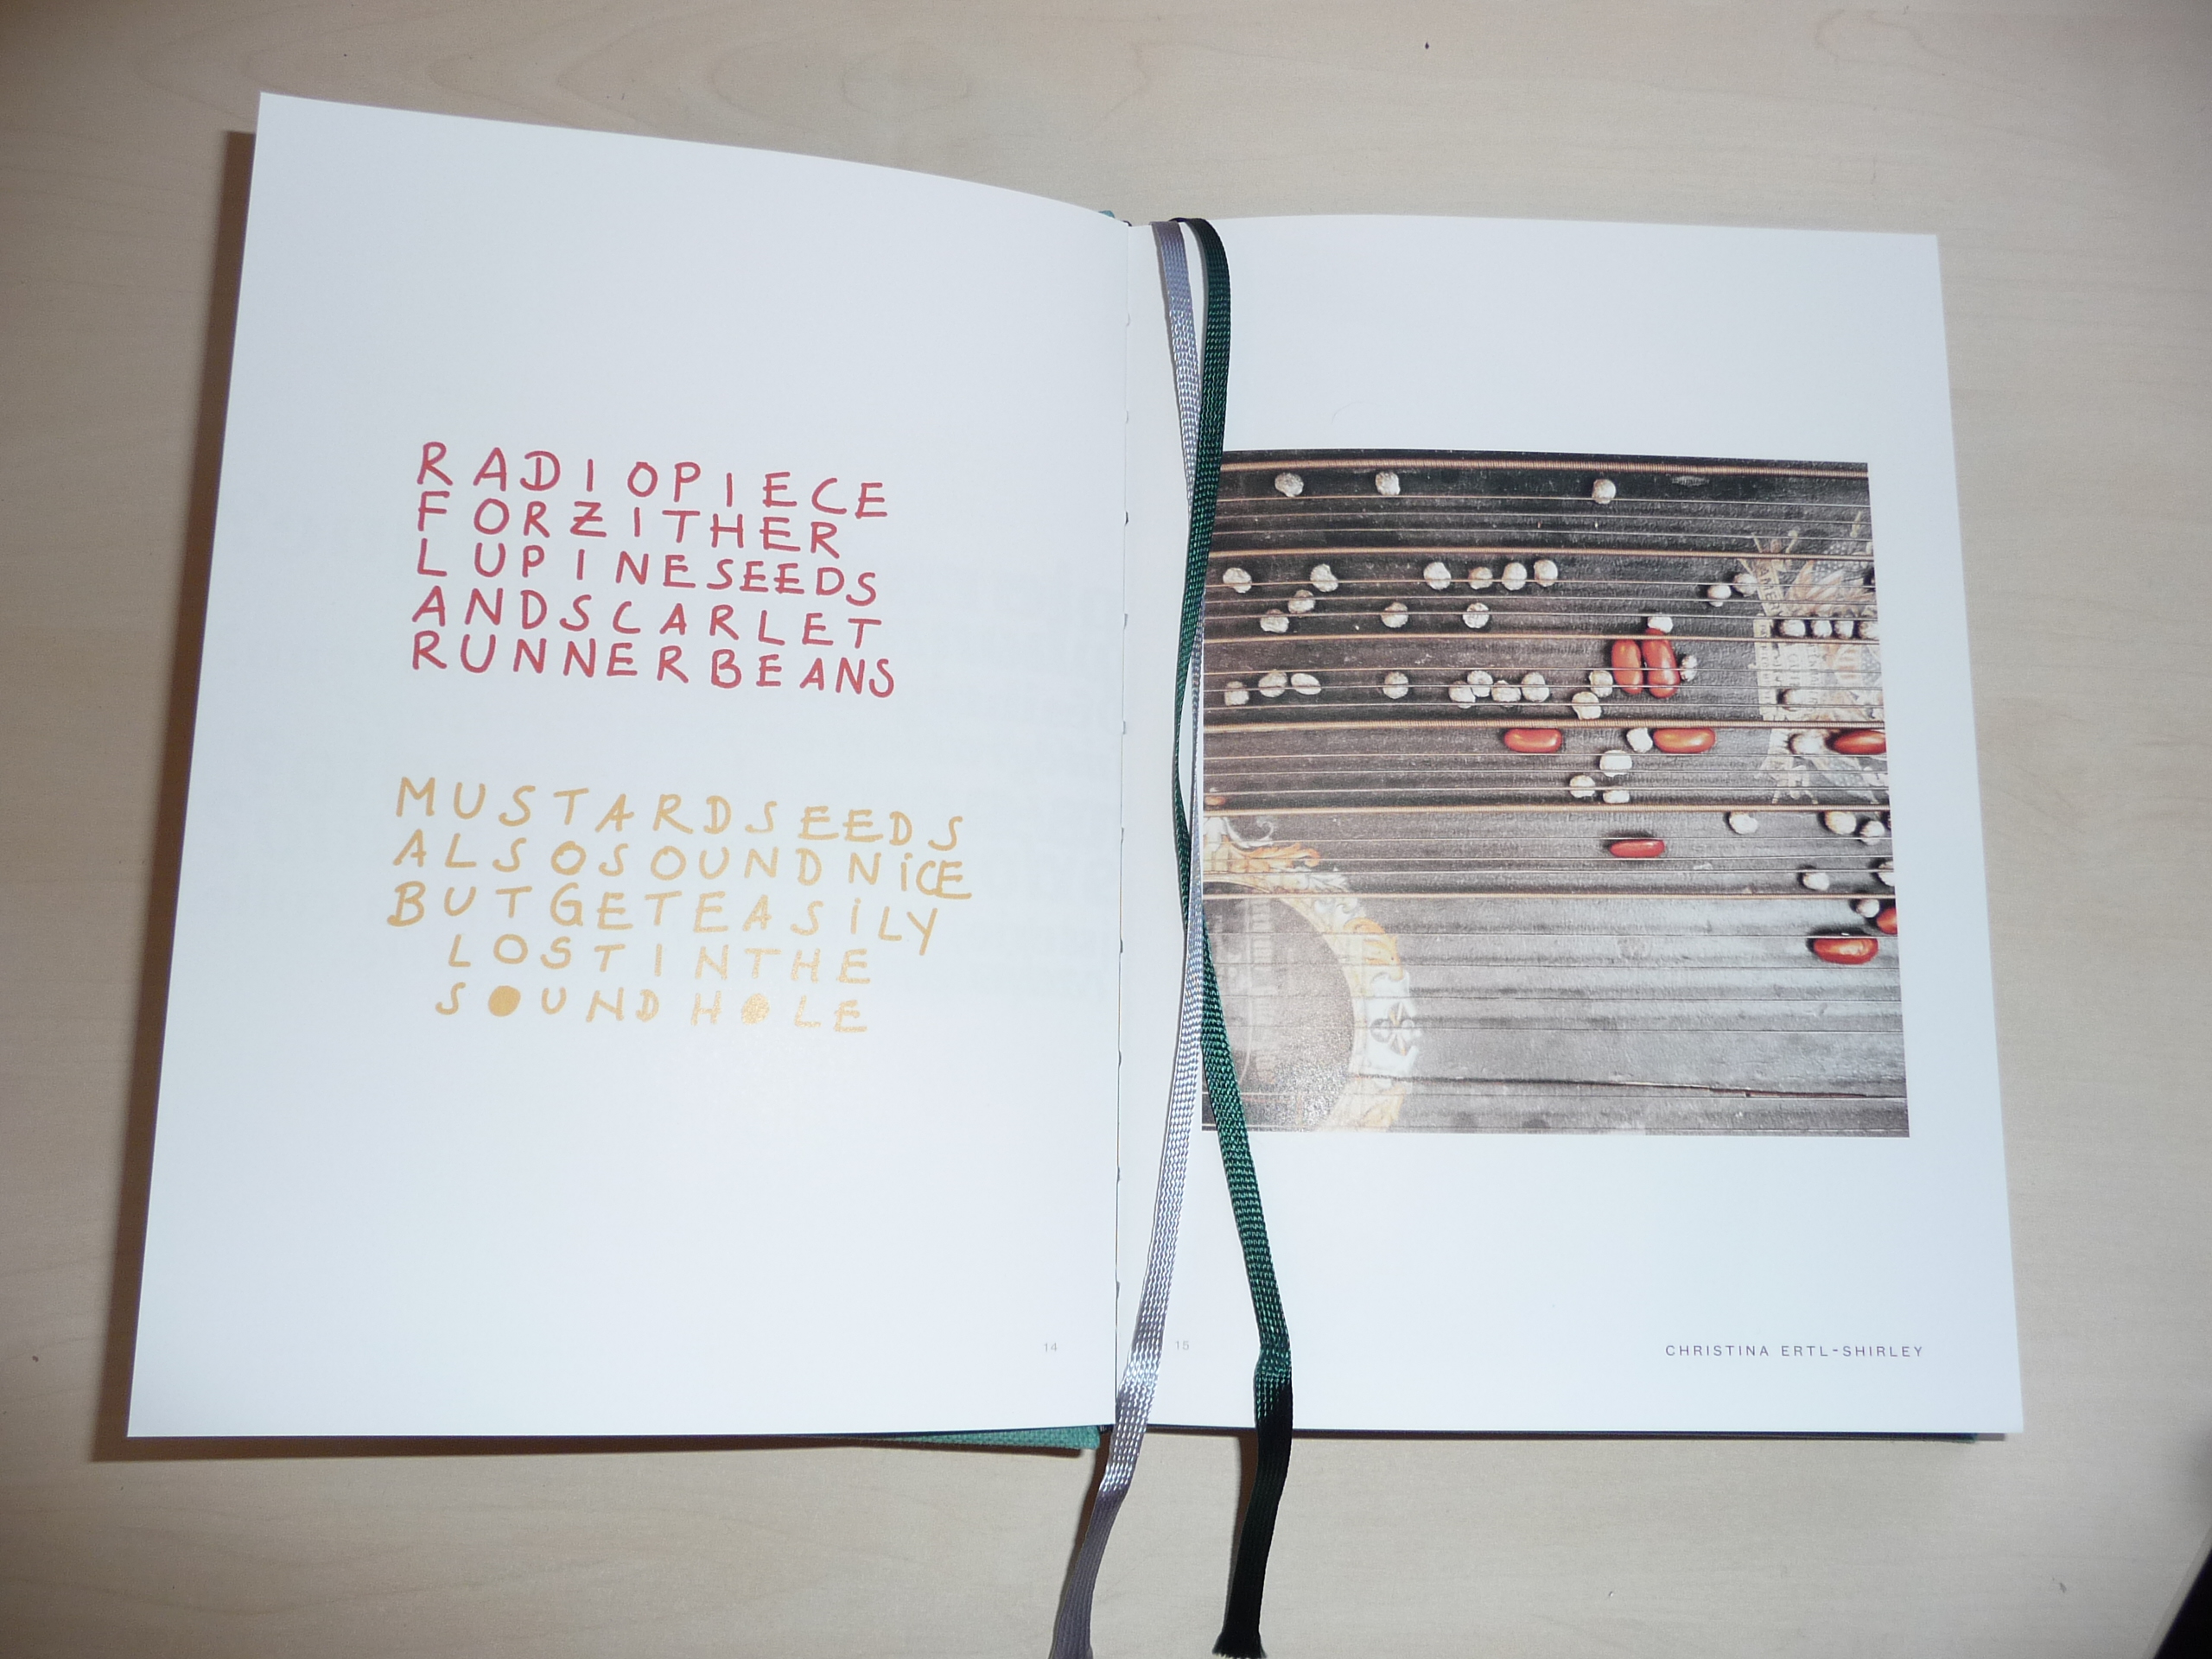 RADIOPIECE
FORZITHER
LUPINESEEDS
ANDSCARLET
RUNNERBEANS
MUSTARDSEEDS
ALSOSOUNDNiCE
BUTGETEASiLY
LOSTINTHE
S●UNDH●LE
14
15
CHRISTINA ERTL-SHIRLEY